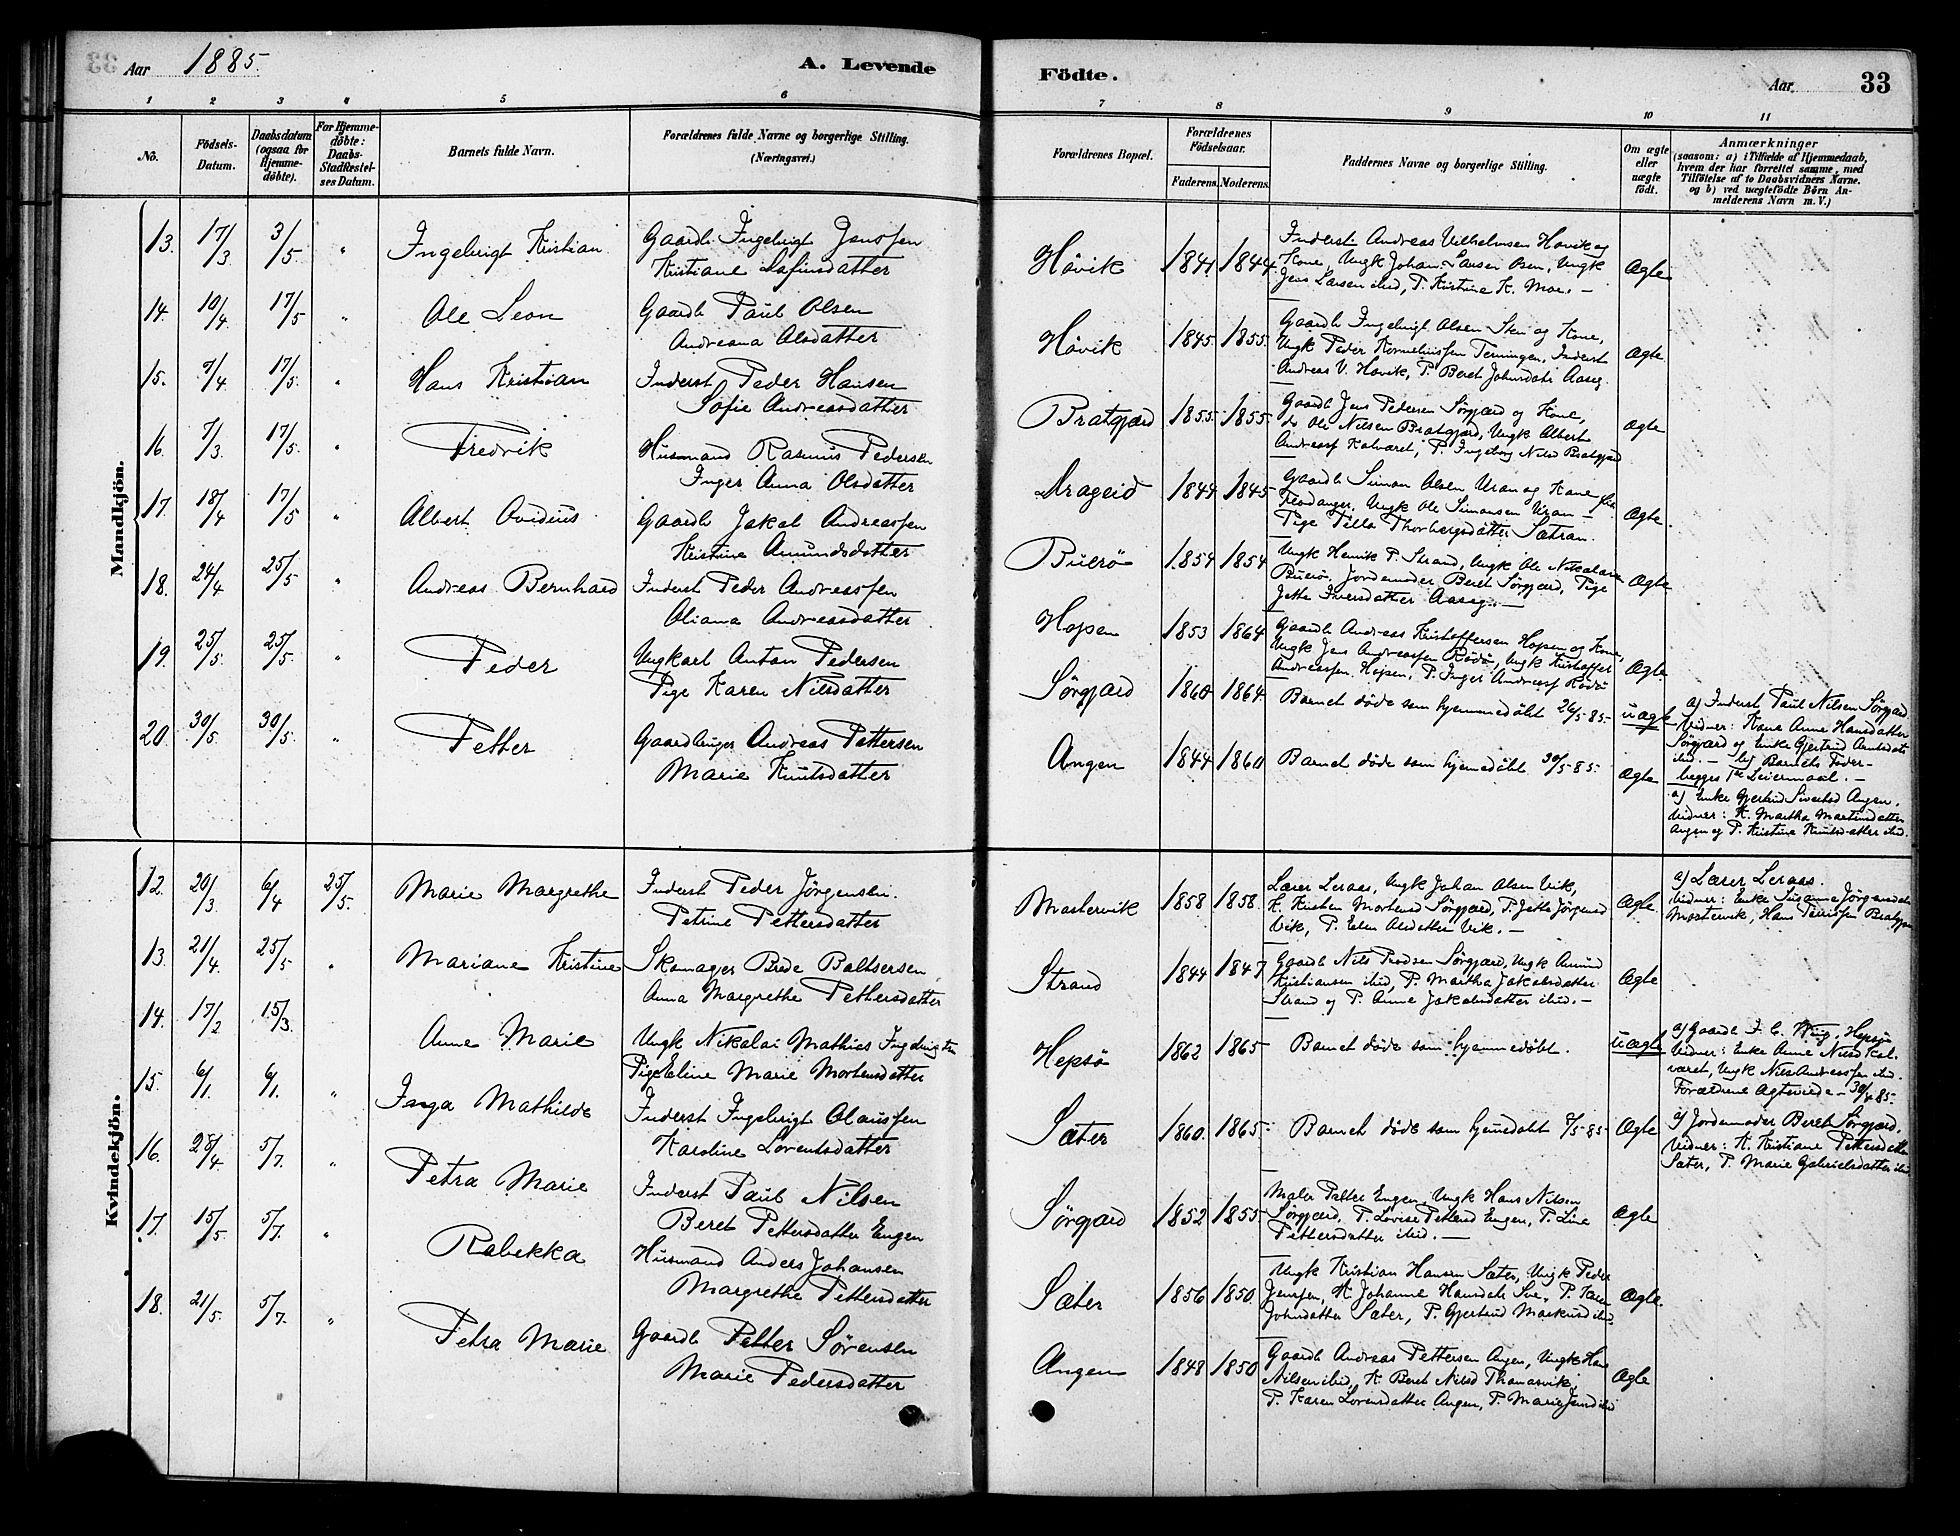 Aar 1885. A. Levende
Födte. Aar 33
1 2 3 4 5 6
7 8 9 10 11
No.
Födsels-
Datum.
Daabsdatum
(ogsaa for
Hjemme-
döbte).
For Hjemme-
döbte:
Daabs-
Stadfæstel-
ses Datum.
Barnets fulde Navn.
Forældrenes fulde Navne og borgerlige Stilling.
(Næringsvei.)
Forældrenes Bopæl.
Forældrenes
Födselsaar.
Faderens. Moderens.
Faddernes Navne og borgerlige Stilling.
Om ægte
eller
uægte
födt.
Anmærkninger
(saasom: a) i Tilfælde af Hjemmedaab,
hvem der har forrettet samme, med
Tilföielse af to Daabsvidners Navne.
og b) ved uægtefödte Börn An-
melderens Navn m. V.)
Mandkjön.
13. 17/3 3/5 " Ingebrigt Kristian
Gaardb Ingebrigt Jenssen
Kristiane
Høvik 1841 1844
Inderst Andreas Vilhelmsen Hovik og
Kone, Ungk Johan Larsen Osen, Ungk
Jens Larsen ibid, P. Kristine K. Moe. -
Ægte
14. 10/4 17/5 " Ole Leon
Gaardb Paul Olsen
Andreana Olsdatter
Høvik 1845 1855.
Gaardb Ingebrigt Olsen Sten og Kone,
Ungk Peder Kornelinssen Terningen, Inderst
Andreas V. Hovik, P. Beret Johnsdatr Aaseg.
Ægte
15. 9/4 17/5. " Hans Kristian
Inderst Peder Hansen
Sofie Andreasdatter
Bratgjærd 1855. 1855.
Gaardb Jens Pedersen Sørgjærd og Kone,
do Ole Nilsen Bratgjærd, Ungk Albert
Andreass Kalværet, P. Ingeborg Nilsd Bratgjærd
Ægte
16. 7/3. 17/5. " Fredrik
Husmand Rasmus Pedersen
Inger Anna Olsdatter
Drageid 1844 1845
Gaardb Simon Olsen Uran og Kone
Ungk Ole Simonsen Uran -
Pige Pella Thorbergsdatter Sætran.
Ægte.
17. 18/4 17/5 " Albert Ovidius
Gaardb Jakob Andreassen
Kristine Amundsdatter
Buerø 1854 1854
Ungk Henrik P. Strand, Ungk Ole Nikolaisen
Buerø, Jordemoder Beret Sørgjærd, Pige
Jette Iversdatter Aaseg. -
Ægte
18. 24/4 25/5 " Andreas Bernhard
Inderst Peder Andreassen
Oliana Andreasdatter
Hopen 1853 1864
Gaardb Andreas Kristoffersen Hopen og Kone,
Ungk Jens Andreassen Rødø, Ungk Kristoffer
Andreassen Hopen, P. Inger Andreasd Rødø
Ægte
19. 25/5. 25/5. " Peder
Ungkarl Anton Pedersen
Pige Karen Nilsdatter
Sørgjærd 1860 1864.
Barnet døde som hjemmedøbt 26/5-85-
uægte
a) Inderst Paul Nilsen Sørgjærd
Vidner: Kone Anne Hansdatter
Sørgjærd og Enke Gjertrud Arntsdatr
ibid. - b) Barnets Fader-
begges 1ste Leiermaal. -
20. 30/5 30/5. " Petter
Gaardbruger Andreas Pettersen
Marie Knutsdatter
Angen 1844 1860
Barnet døde som hjemmedøbt 30/5-85.
Ægte
a) Enke Gjertrud Sivertsd Angen.
Vidner: K. Martha Martinsdatter
Angen og P. Kristine Knutsdatter ibid.
Kvindekjön.
12. 20/3 6/4 25/5. Marie Margrethe
Inderst Peder Jørgensen.
Petrine Pettersdatter
Mastervik 1858 1858.
Lærer Leraas, Ungk Johan Olsen Vik,
K. Kirsten Mortensd Sørgjærd, P. Jette Jørgensd
Vik, P. Elen Olsdatter Vik. -
Ægte.
a) Lærer Leraas.
Vidner: Enke Susanna Jørgensdatr
Mastervik, Hans
13. 21/4. 25/5 " Mariane Kristine
Skomager Brede Baltsersen
Anna Margrethe Pettersdatter
Strand 1844 1847
Gaardb Nils Sørgjærd, Ungk Amund
Kristiansen ibid, P. Martha Jakobsdatter
Strand og P. Anne Jakobsdatter ibid. -
Ægte
14. 17/2 15/3. Anne Marie
Ungk Nikolai Mathias Ingebrigtsen
Pige Eline Marie Mortensdatter
Hepsø 1862 1865
Barnet døde som hjemmedøbt.
uægte
a) Gaardb J. C. King, Hepsø
Vidner: Enke Anne Nilsd Kal-
været, Ungk Nils Andreassen ibid.
Forældrene Ægteviede 30/4 85.
15. 6/1. 6/1. " Inga Mathilde
Inderst Ingebrigt Olaussen
Karoline Lorentsdatter
Sæter 1860. 1865
Barnet døde som hjemmedøbt 8/5-85
Ægte
a) Jordemoder Beret Sørgjærd.
Vidner: K. Kristiane Pettersdatter
Sæter, P. Marie Gabrielsdatter ibid
16. 28/4 5/7. " Petra Marie
Inderst Paul Nilsen
Beret Pettersdatter Engen
Sørgjærd 1852 1855
Maler Petter Engen, Ungk Hans Nilsen
Sørgjærd, P. Lovise Pettersd Engen, P. Line
Pettersdatter ibid. -
Ægte
17. 15/5 5/7. " Rebekka
Husmand Anders Johansen
Margrethe Pettersdatter
Sæter 1856 1850
Ungk Kristian Hansen Sæter, Ungk Peder
Jenssen, K. Johanne Hansdatr Sve, P. Karen
Johnsdatter Sæter, P. Gjertrud Markusd ibid.
Ægte.
18. 21/5. 5/7. " Petra Marie
Gaardb Petter Sørensen
Marie Pedersdatter
Angen 1848 1850
Gaardb Andreas Pettersen Angen, Ungk Hans
Nilsen ibid, K. Beret Nilsd Thomasvik,
P. Karen Lorensdatter Angen, P. Marie Jensd ibid
Ægte